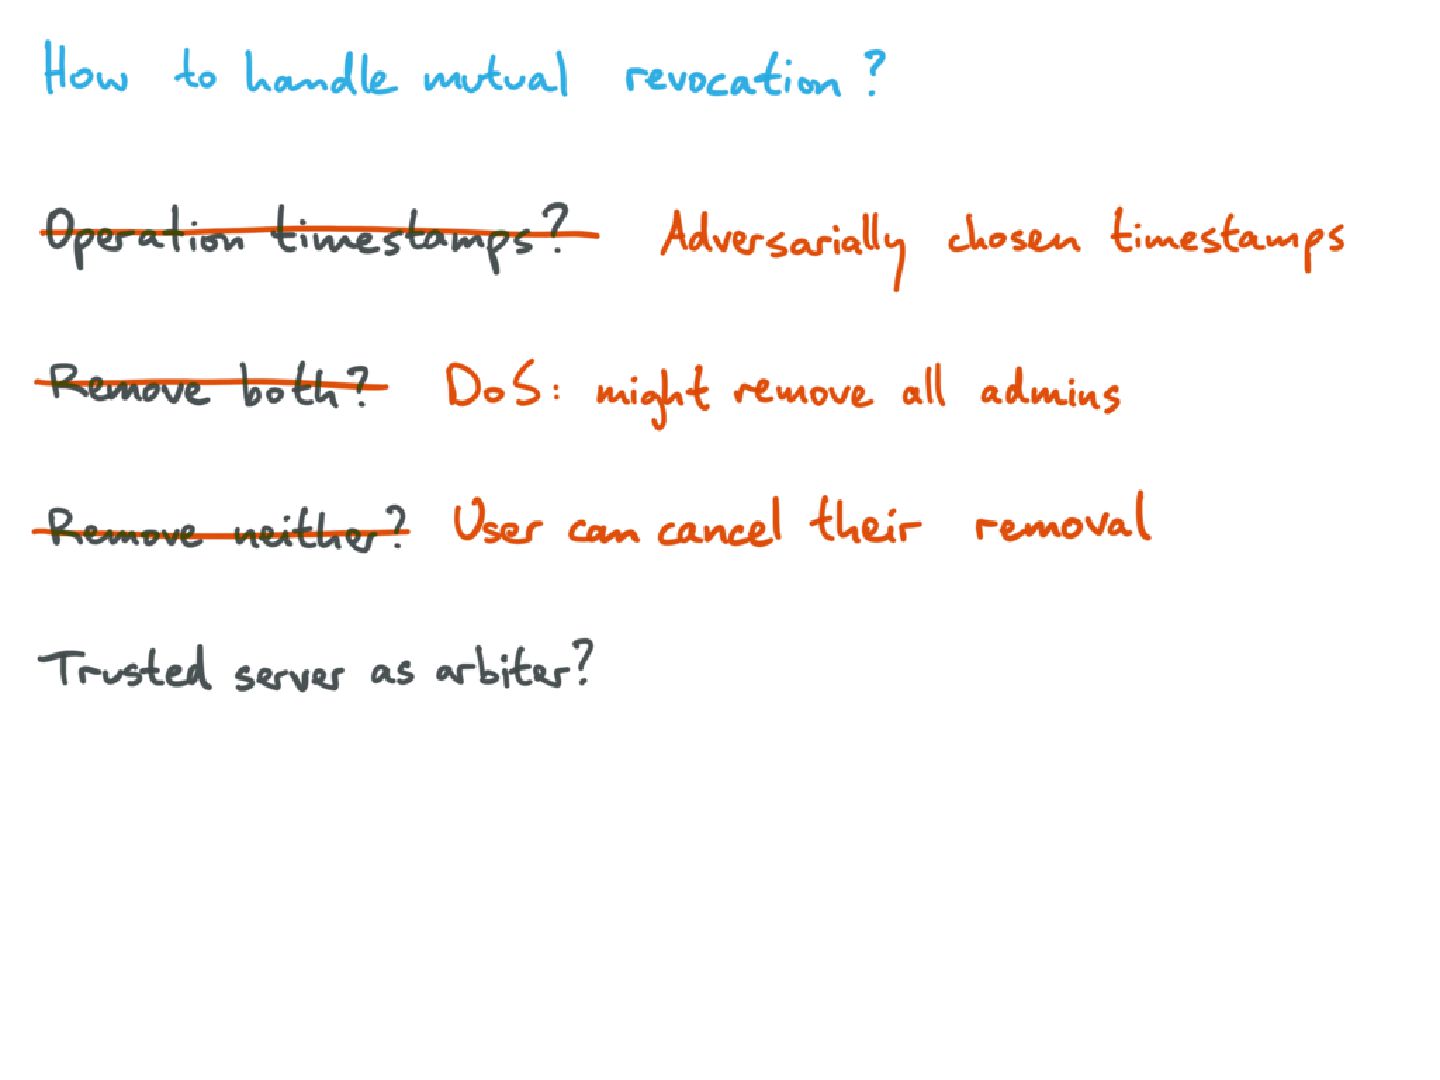 How to handle mutual revocation?
Operation timestamps? Adversarially chosen timestamps
Remove both? DoS: might remove all admins
Remove neither? User can cancel their removal
Trusted server as arbiter?